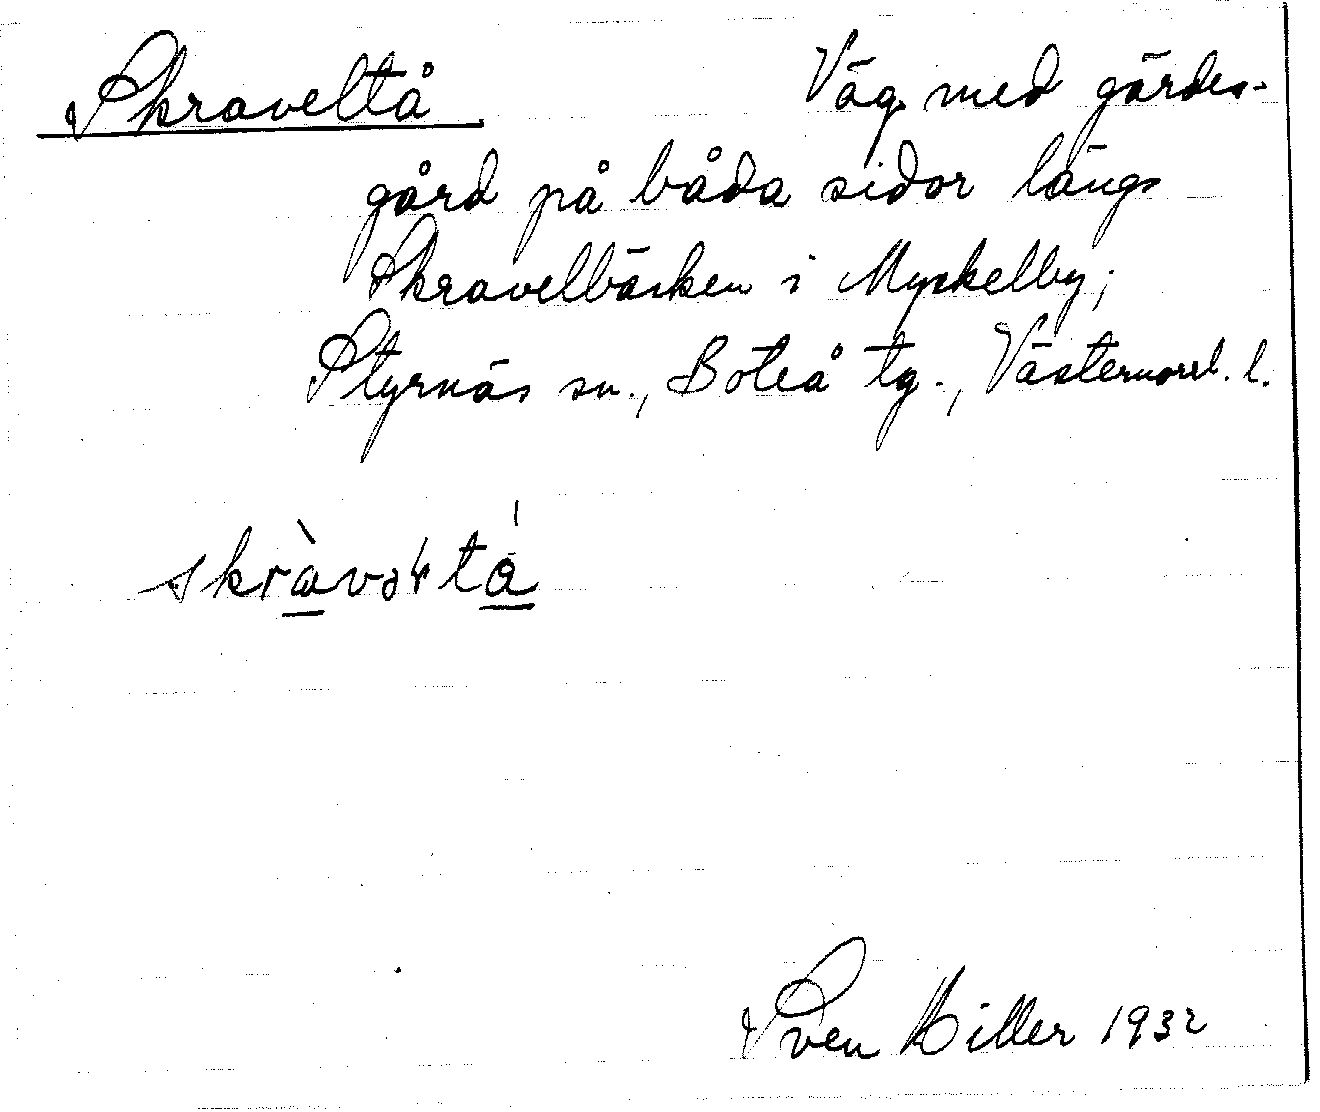 Skraveltå Väg med gärdes-
gård på båda sidor längs
Skravelbäcken i Myckelby,
Styrnäs sn., Boteå tg., Västernorrl. l.
skràvəɬtá
Sven Hiller 1932